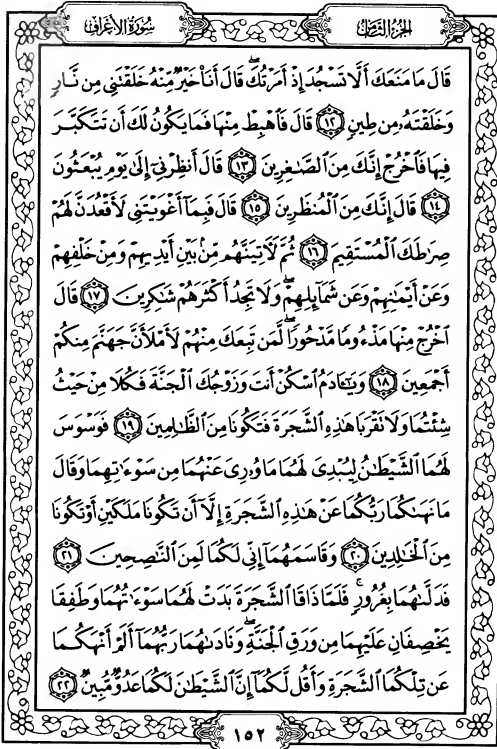 سُورَةُ الأَعْرَافِ الجُزْءُ الثَّامِنُ
قَالَ مَا مَنَعَكَ أَلَّا تَسْجُدَ إِذْ أَمَرْتُكَ ۖ قَالَ أَنَا۠ خَيْرٌ مِّنْهُ خَلَقْتَنِى مِن نَّارٍ
وَخَلَقْتَهُۥ مِن طِينٍ ١٢ قَالَ فَٱهْبِطْ مِنْهَا فَمَا يَكُونُ لَكَ أَن تَتَكَبَّرَ
فِيهَا فَٱخْرُجْ إِنَّكَ مِنَ ٱلصَّٰغِرِينَ ١٣ قَالَ أَنظِرْنِىٓ إِلَىٰ يَوْمِ يُبْعَثُونَ
١٤ قَالَ إِنَّكَ مِنَ ٱلْمُنظَرِينَ ١٥ قَالَ فَبِمَآ أَغْوَيْتَنِى لَأَقْعُدَنَّ لَهُمْ
صِرَٰطَكَ ٱلْمُسْتَقِيمَ ١٦ ثُمَّ لَـَٔاتِيَنَّهُم مِّنۢ بَيْنِ أَيْدِيهِمْ وَمِنْ خَلْفِهِمْ
وَعَنْ أَيْمَٰنِهِمْ وَعَن شَمَآئِلِهِمْ ۖ وَلَا تَجِدُ أَكْثَرَهُمْ شَٰكِرِينَ ١٧ قَالَ
ٱخْرُجْ مِنْهَا مَذْءُومًا مَّدْحُورًا ۖ لَّمَن تَبِعَكَ مِنْهُمْ لَأَمْلَأَنَّ جَهَنَّمَ مِنكُمْ
أَجْمَعِينَ ١٨ وَيَٰٓـَٔادَمُ ٱسْكُنْ أَنتَ وَزَوْجُكَ ٱلْجَنَّةَ فَكُلَا مِنْ حَيْثُ
شِئْتُمَا وَلَا تَقْرَبَا هَٰذِهِ ٱلشَّجَرَةَ فَتَكُونَا مِنَ ٱلظَّٰلِمِينَ ١٩ فَوَسْوَسَ
لَهُمَا ٱلشَّيْطَٰنُ لِيُبْدِىَ لَهُمَا مَا وُۥرِىَ عَنْهُمَا مِن سَوْءَٰتِهِمَا وَقَالَ
مَا نَهَىٰكُمَا رَبُّكُمَا عَنْ هَٰذِهِ ٱلشَّجَرَةِ إِلَّآ أَن تَكُونَا مَلَكَيْنِ أَوْ تَكُونَا
مِنَ ٱلْخَٰلِدِينَ ٢٠ وَقَاسَمَهُمَآ إِنِّى لَكُمَا لَمِنَ ٱلنَّٰصِحِينَ ٢١
فَدَلَّىٰهُمَا بِغُرُورٍ ۚ فَلَمَّا ذَاقَا ٱلشَّجَرَةَ بَدَتْ لَهُمَا سَوْءَٰتُهُمَا وَطَفِقَا
يَخْصِفَانِ عَلَيْهِمَا مِن وَرَقِ ٱلْجَنَّةِ ۖ وَنَادَىٰهُمَا رَبُّهُمَآ أَلَمْ أَنْهَكُمَا
عَن تِلْكُمَا ٱلشَّجَرَةِ وَأَقُل لَّكُمَآ إِنَّ ٱلشَّيْطَٰنَ لَكُمَا عَدُوٌّ مُّبِينٌ ٢٢
١٥٢